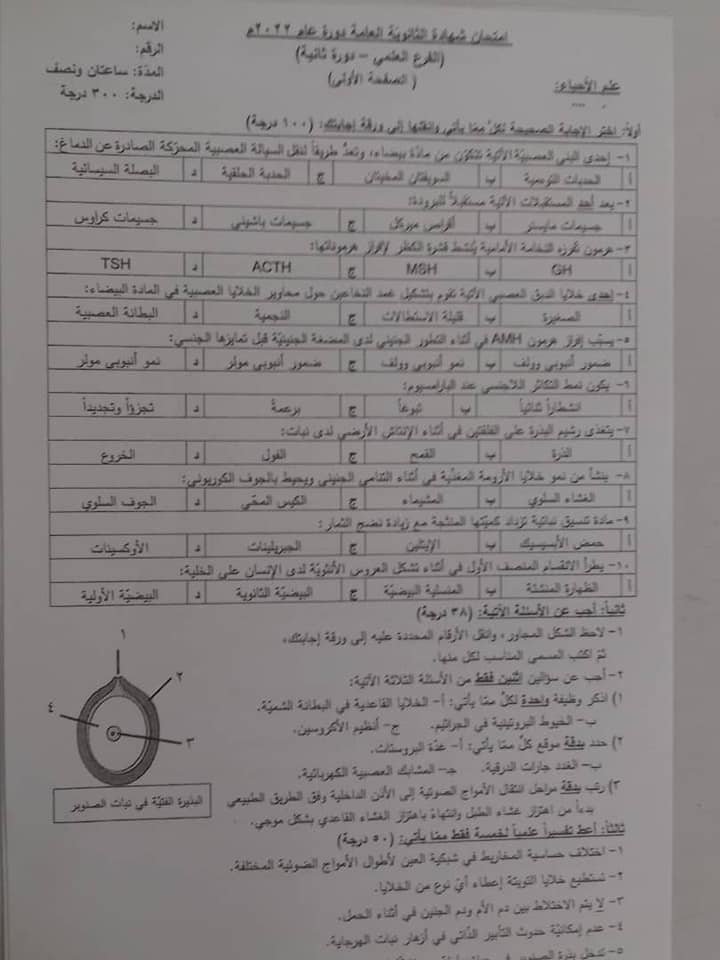 امتحان شهادة الثانوية العامة دورة عام ٢٠٢٢م
(الفرع العلمي – دورة ثانية)
(الصفحة الأولى)
الاسم:
الرقم:
المدة: ساعتان ونصف
الدرجة: ٣٠٠ درجة
علم الأحياء:
أولاً: اختر الإجابة الصحيحة لكلّ ممّا يأتي وانقلها إلى ورقة إجابتك: (١٠٠ درجة)
١- إحدى البنى العصبيّة الآتية تتكوّن من مادّة بيضاء، وتعدّ طريقاً لنقل السيالة العصبية المحرّكة الصادرة عن الدماغ:
أ الحدبات التوءمية ب السويقتان المخيتان ج الحدبة الحلقية د البصلة السيسائية
٢- يعد أحد المستقبلات الآتية مستقبلاً للبرودة:
أ جسيمات مايسنر ب أقراص ميركل ج جسيمات باشيني د جسيمات كراوس
٣- هرمون تفرزه النخامة الأمامية يُنشط قشرة الكظر لإفراز هرموناتها:
أ GH ب MSH ج ACTH د TSH
٤- إحدى خلايا الدبق العصبي الآتية تقوم بتشكيل غمد النخاعين حول محاوير الخلايا العصبية في المادة البيضاء:
أ الصغيرة ب قليلة الاستطالات ج النجمية د البطانة العصبية
٥- يسبّب إفراز هرمون AMH في أثناء التطور الجنيني لدى المضغة الجنينيّة قبل تمايزها الجنسي:
أ ضمور أنبوبي وولف ب نمو أنبوبي وولف ج ضمور أنبوبي مولر د نمو أنبوبي مولر
٦- يكون نمط التكاثر اللاجنسي عند البارامسيوم:
أ انشطاراً ثنائياً ب تبوغاً ج برعمةً د تجزؤاً وتجديداً
٧- يتغذى رشيم البذرة على الفلقتين في أثناء الإنتاش الأرضي لدى نبات:
أ الذرة ب القمح ج الفول د الخروع
٨- ينشأ من نمو خلايا الأرومة المغذّية في أثناء التنامي الجنيني ويحيط بالجوف الكوريوني:
أ الغشاء السلوي ب المشيماء ج الكيس المحّي د الجوف السلوي
٩- مادة تنسيق نباتية تزداد كميّتها المنتجة مع زيادة نضج الثمار:
أ حمض الأبسيسيك ب الإيتلين ج الجبريلينات د الأوكسينات
١٠- يطرأ الانقسام المنصف الأول في أثناء تشكل العروس الأنثويّة لدى الإنسان على الخلية:
أ الظهارة المنشئة ب المنسلية البيضيّة ج البيضيّة الثانوية د البيضيّة الأولية
ثانياً: أجب عن الأسئلة الآتية: (٣٨ درجة)
١- لاحظ الشكل المجاور، وانقل الأرقام المحددة عليه إلى ورقة إجابتك،
ثمّ اكتب المسمى المناسب لكل منها.
٢- أجب عن سؤالين اثنين فقط من الأسئلة الثلاثة الآتية:
١) اذكر وظيفة واحدة لكلّ ممّا يأتي: أ- الخلايا القاعدية في البطانة الشميّة.
ب- الخيوط البروتينية في الجراثيم. ج- أنظيم الأكروسين.
٢) حدد بدقة موقع كلّ ممّا يأتي: أ- غدّة البروستات.
ب- الغدد جارات الدرقية. جـ- المشابك العصبية الكهربائية.
٣) رتب بدقة مراحل انتقال الأمواج الصوتية إلى الأذن الداخلية وفق الطريق الطبيعي
بدءاً من اهتزاز غشاء الطبل وانتهاءً باهتزاز الغشاء القاعدي بشكل موجي.
١
٢
٣
٤
البذيرة الفتيّة في نبات الصنوبر
ثالثاً: أعط تفسيراً علمياً لخمسة فقط ممّا يأتي: (٥٠ درجة)
١- اختلاف حساسية المخاريط في شبكية العين لأطوال الأمواج الضوئية المختلفة.
٢- تستطيع خلايا التويتة إعطاء أيّ نوع من الخلايا.
٣- لا يتم الاختلاط بين دم الأم ودم الجنين في أثناء الحمل.
٤- عدم إمكانيّة حدوث التأبير الذّاتي في أزهار نبات الهرجاية.
٥- تدخل بذرة الصنوبر في